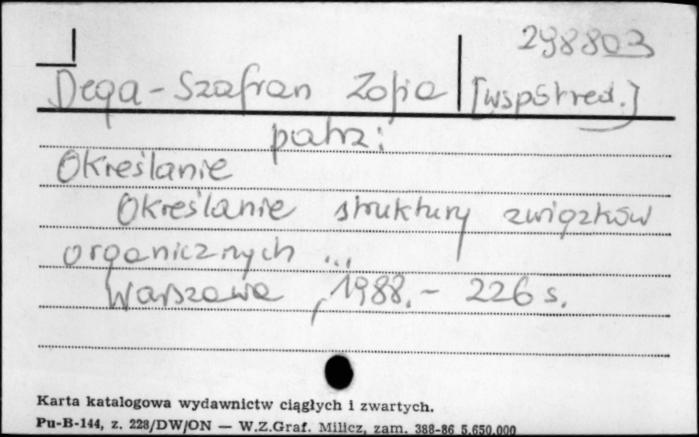 298803
Dega-Szafran Zofia [współred.]
patrz:
Określanie
Określanie struktury związków
organicznych ...
Warszawa, 1988.- 226 s.
Karta katalogowa wydawnictw ciągłych i zwartych.
Pu-B-144, z. 228/DW/ON — W.Z.Graf. Milicz, zam. 388-86 5.650.000